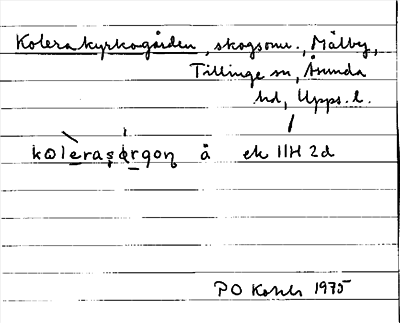 Kolerakyrkogården, skogsomr., Målby,
Tillinge sn, Åsunda
hd, Upps. l.
kolerasạrgon å ek 11H 2d
PO 1975